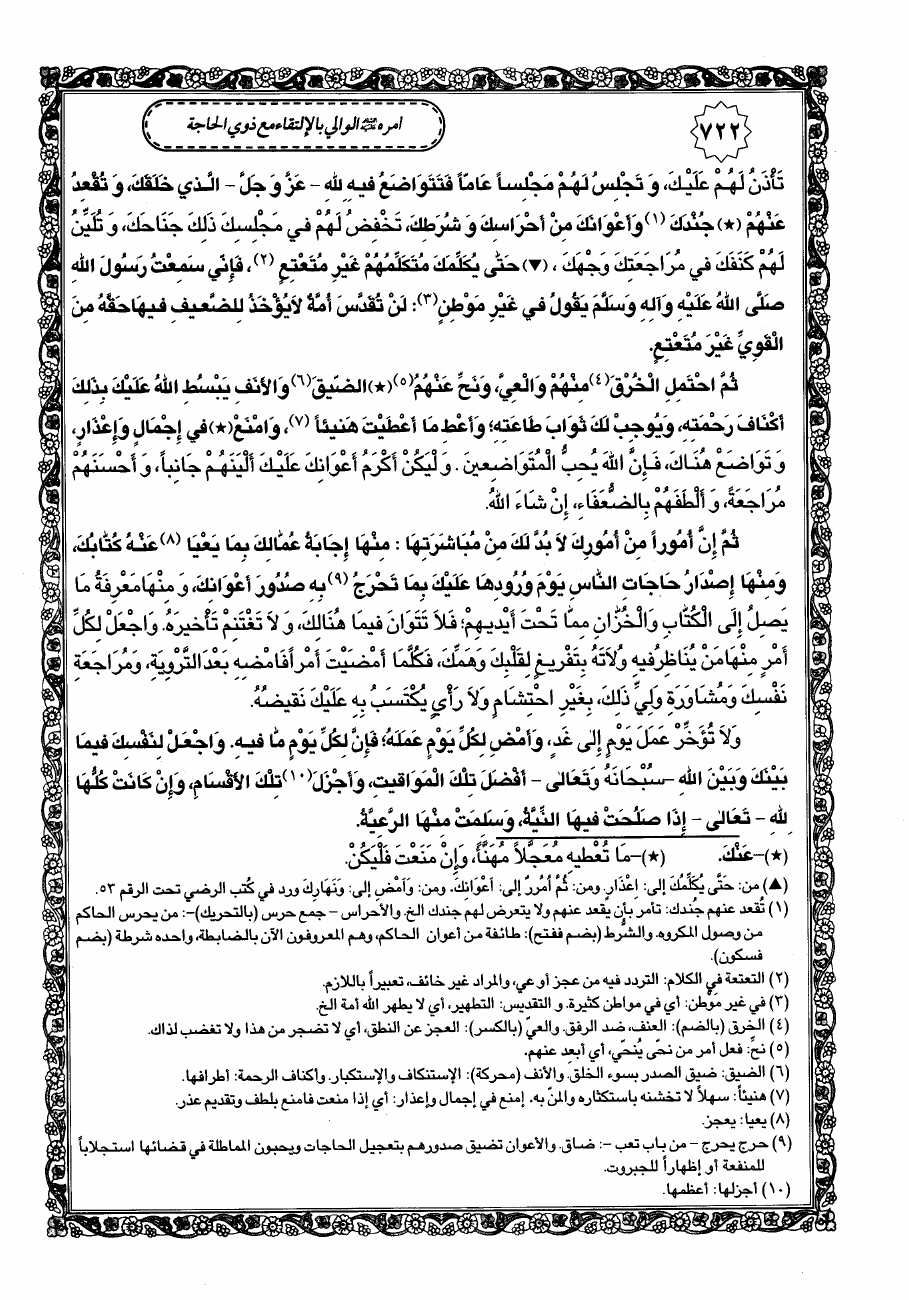 ٧٢٢
امره ﷺ الوالي بالإلتقاء مع ذوي الحاجة
تَأْذَنُ لَهُمْ عَلَيْكَ، وَ تَجْلِسُ لَهُمْ مَجْلِساً عَامّاً فَتَتَوَاضَعُ فيهِ للهِ - عَزَّ وَ جَلَّ - الَّذي خَلَقَكَ، وَ تُقْعِدُ
عَنْهُمْ (★) جُنْدَكَ (١) وَأَعْوَانَكَ مِنْ أَحْرَاسِكَ وَ شُرَطِكَ، تَخْفِضُ لَهُمْ في مَجْلِسِكَ ذَلِكَ جَنَاحَكَ، وَ تُلَيِّنُ
لَهُمْ كَنَفَكَ في مُرَاجَعَتِكَ وَجْهَكَ ، (▼) حَتّٰى يُكَلِّمَكَ مُتَكَلِّمُهُمْ غَيْرَ مُتَعْتِعٍ (٢)، فَإِنّي سَمِعْتُ رَسُولَ اللهِ
صَلَّى اللهُ عَلَيْهِ وَآلِهِ وَسَلَّمَ يَقُولُ في غَيْرِ مَوْطِنٍ (٣): لَنْ تُقَدَّسَ أُمَّةٌ لَا يُؤْخَذُ لِلضَّعيفِ فيهَا حَقُّهُ مِنَ
الْقَوِيِّ غَيْرَ مُتَعْتِعٍ.
ثُمَّ احْتَمِلِ الْخُرْقَ (٤) مِنْهُمْ وَالْعِيَّ، وَنَحِّ عَنْهُمُ (٥) (★) الضّيقَ (٦) وَالأَنَفَ يَبْسُطِ اللهُ عَلَيْكَ بِذَلِكَ
أَكْنَافَ رَحْمَتِهِ، وَيُوجِبْ لَكَ ثَوَابَ طَاعَتِهِ؛ وَأَعْطِ مَا أَعْطَيْتَ هَنيئاً (٧)، وَامْنَعْ (★) في إِجْمَالٍ وَإِعْذَارٍ،
وَ تَوَاضَعْ هُنَاكَ، فَإِنَّ اللهَ يُحِبُّ الْمُتَوَاضِعينَ . وَ لْيَكُنْ أَكْرَمُ أَعْوَانِكَ عَلَيْكَ أَلْيَنَهُمْ جَانِباً، وَ أَحْسَنَهُمْ
مُرَاجَعَةً، وَ أَلْطَفَهُمْ بِالضُّعَفَاءِ، إِنْ شَاءَ اللهُ.
ثُمَّ إِنَّ أُمُوراً مِنْ أُمُورِكَ لَا بُدَّ لَكَ مِنْ مُبَاشَرَتِهَا : مِنْهَا إِجَابَةُ عُمّالِكَ بِمَا يَعْيَا (٨) عَنْهُ كُتّابُكَ،
وَمِنْهَا إِصْدَارُ حَاجَاتِ النّاسِ يَوْمَ وُرُودِهَا عَلَيْكَ بِمَا تَحْرَجُ (٩) بِهِ صُدُورُ أَعْوَانِكَ، وَ مِنْهَا مَعْرِفَةُ مَا
يَصِلُ إِلَى الْكُتّابِ وَالْخُزّانِ مِمّا تَحْتَ أَيْديهِمْ؛ فَلَا تَتَوَانَ فيمَا هُنَالِكَ، وَ لَا تَغْتَنِمْ تَأْخيرَهُ. وَاجْعَلْ لِكُلِّ
أَمْرٍ مِنْهَا مَنْ يُنَاظِرُ فيهِ وُلَاتَهُ بِتَفْريغٍ لِقَلْبِكَ وَهَمِّكَ، فَكُلَّمَا أَمْضَيْتَ أَمْراً فَامْضِهِ بَعْدَ التَّرْوِيَةِ، وَمُرَاجَعَةِ
نَفْسِكَ وَمُشَاوَرَةِ وَلِيِّ ذَلِكَ، بِغَيْرِ احْتِشَامٍ وَلَا رَأْيٍ يُكْتَسَبُ بِهِ عَلَيْكَ نَقيضُهُ.
وَلَا تُؤَخِّرْ عَمَلَ يَوْمٍ إِلى غَدٍ، وَأَمْضِ لِكُلِّ يَوْمٍ عَمَلَهُ؛ فَإِنَّ لِكُلِّ يَوْمٍ مَا فيهِ. وَاجْعَلْ لِنَفْسِكَ فيمَا
بَيْنَكَ وَبَيْنَ اللهِ -سُبْحَانَهُ وَتَعَالى - أَفْضَلَ تِلْكَ الْمَوَاقيتِ، وَأَجْزَلَ (١٠) تِلْكَ الأَقْسَامِ، وَإِنْ كَانَتْ كُلُّهَا
للهِ - تَعَالى - إِذَا صَلُحَتْ فيهَا النِّيَّةُ، وَسَلِمَتْ مِنْهَا الرَّعِيَّةُ.
(★)-عَنْكَ. (★)-مَا تُعْطيهِ مُعَجَّلاً مُهَنَّأً، وَإِنْ مَنَعْتَ فَلْيَكُنْ.
(▲) من: حَتّٰى يُكَلِّمَكَ إلى: إِعْذَارٍ. ومن: ثُمَّ أُمُورٌ إلى: أَعْوَانِكَ. ومن: وَأَمْضِ إلى: وَنَهَارِكَ ورد في كُتب الرضي تحت الرقم ٥٣.
(١) تُقعد عنهم جُندك: تأمر بأن يقعد عنهم ولا يتعرض لهم جندك الخ. والأحراس - جمع حرس (بالتحريك)-: من يحرس الحاكم
من وصول المكروه. والشُرط (بضم ففتح): طائفة من أعوان الحاكم، وهم المعروفون الآن بالضابطة، واحده شرطة (بضم
فسكون).
(٢) التعتعة في الكلام: التردد فيه من عجز أو عي، والمراد غير خائف، تعبيراً باللازم.
(٣) في غير مَوْطن: أي في مواطن كثيرة. و التقديس: التطهير، أي لا يطهر الله أمة الخ.
(٤) الخرق (بالضم): العنف، ضد الرفق. والعيّ (بالكسر): العجز عن النطق، أي لا تضجر من هذا ولا تغضب لذاك.
(٥) نحِّ: فعل أمر من نحّى يُنحّي، أي أبعد عنهم.
(٦) الضيق: ضيق الصدر بسوء الخلق. والأنف (محركة): الإستنكاف والإستكبار. وأكناف الرحمة: أطرافها.
(٧) هنيئاً: سهلاً لا تخشنه باستكثاره والمنّ به. إمنع في إجمال وإعذار: أي إذا منعت فامنع بلطف وتقديم عذر.
(٨) يعيا: يعجز.
(٩) حرج يحرج - من باب تعب -: ضاق. والأعوان تضيق صدورهم بتعجيل الحاجات ويحبون المماطلة في قضائها استجلاباً
للمنفعة أو إظهاراً للجبروت.
(١٠) أجزلها: أعظمها.